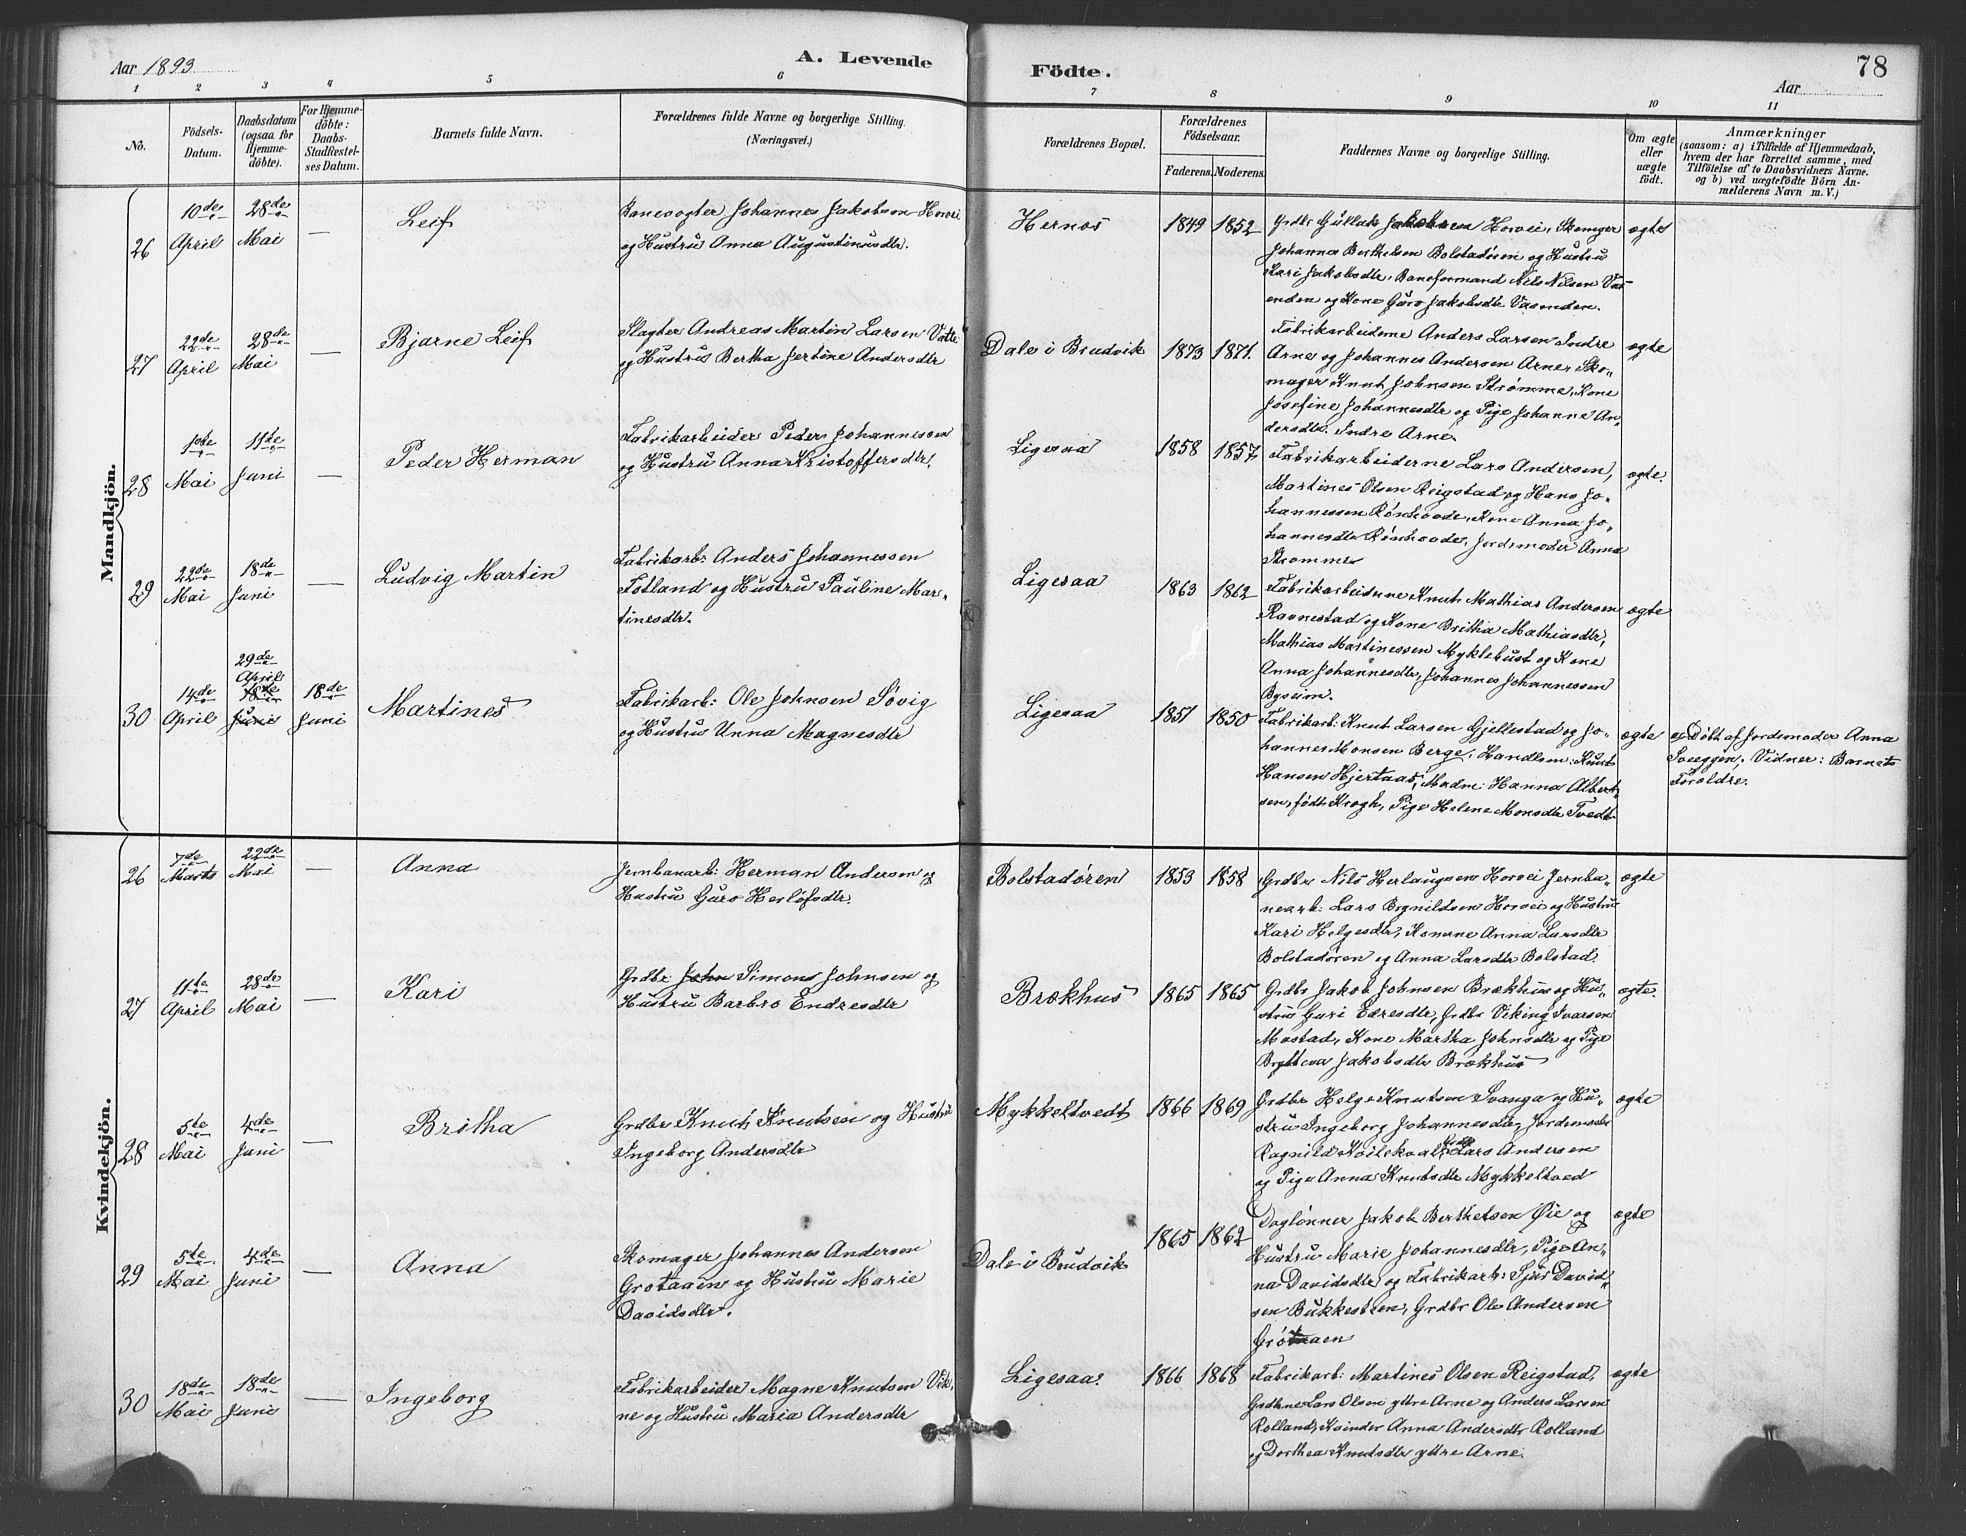 Aar 1893
A. Levende
Födte.
Aar
78
1 2 3 4 5 6 7 8 9 10 11
No.
Födsels-
Datum.
Daabsdatum
(ogsaa for
Hjemme-
döbte).
For Hjemme-
döbte:
Daabs-
Stadfæstel-
ses Datum.
Barnets fulde Navn.
Forældrenes fulde Navne og borgerlige Stilling.
(Næringsvei.)
Forældrenes Bopæl.
Forældrenes
Födselsaar.
Faderens. Moderens.
Faddernes Navne og borgerlige Stilling.
Om ægte
eller
uægte
födt.
Anmærkninger
(saasom: a) i Tilfælde af Hjemmedaab,
hvem der har forrettet samme, med
Tilföielse af to Daabsvidners Navne.
og b) ved uægtefödte Börn An-
melderens Navn m. V.)
Mandkjön.
26
10de
April
28de
Mai
—
Leif
Banevogter Johannes Jakobsen Horvei
og Hustru Anna Augustinusdtr.
Hernes
1849 1852
Grdbr Gullak Jakobsen Horvei, Skomger
Johannes Berthelsen Bolstadören og Hustru
Kari Jakobsdtr, Baneformand Nils Nilsen Vas-
enden og Kone Guro Jakobsdtr Vasenden.
ægte
27
22de
April
28de
Mai
—
Bjarne Leif
Slagter Andreas Martin Larsen Vatle
og Hustru Bertha Jertine Andersdtr
Dale i Brudvik
1873 1871.
Fabrikarbeiderne Anders Larsen Indre
Arne og Johannes Andersen Arne, Sko-
mager Knut Johnsen Strømme, Kone
Josefine Johannesdtr og Pige Johanne An-
dersdtr. Indre Arne.
ægte
28
1ste
Mai
11te
Juni
—
Peder Herman
Fabrikarbeider Peder Johannessen
og Hustru Anna Kristoffersdtr,
Ligesaa
1858 1857
Fabrikarbeiderne Lars Andersen,
Martines Olsen Reigstad og Hans Jo-
hannessen Rønhovde, Kone Anna Jo-
hannesdtr Rønhovde, Jordemoder Anna
Strømme
ægte.
29
22de
Mai
18de
Juni
—
Ludvig Martin
Fabrikarb: Anders Johannessen
Fotland og Hustru Pauline Mar-
tinesdtr.
Ligesaa
1863 1862
Fabrikarbeiderne Knut Mathias Andersen
Ravnestad og Kone Britha Mathiasdtr,
Mathias Martinessen Myklebust og Kone
Anna Johannesdtr, Johannes Johannessen
Byseim.
ægte
30
14de
April
29de
April
18de
Juni
18de
Juni
Martines
Fabrikarb: Ole Johnsen Søvig
og Hustru Unna Magnesdtr
Ligesaa
1851 1850
Fabrikarb: Knut Larsen Gjellestad og Jo-
hannes Monsen Berge, Handlsm: Knut
Hansen Hjertaas, Madm: Hanna Albert-
sen, født Krogh, Pige Helene Monsdtr Tvedt
ægte
a, Døbt af Jordemoder Anna
Sveggen; Vidner: Barnets
Foroldre.
Kvindekjön.
26
7de
Marts
22de
Mai
—
Anna
Jernbanarb: Herman Andersen og
Hustru Guro Herløfsdtr.
Bolstadören
1853 1858
Grdbr Nils Herlaugsen Horvei Jernba-
nearb: Lars Brynildsen Horvei og Hustru
Kari Helgesdtr, Konerne Anna Larsdtr
Bolstadören og Anna Larsdtr Bolstad,
ægte
27
11te
April
28de
Mai
—
Kari
Grdbr John Simons Johnsen og
Hustru Barbro Endresdtr
Brækhus
1865 1865
Grdbr Jakob Johnsen Brækhus og Hu-
stru Guri Edresdtr, Grdbr Viking Ivarsen
Mostad, Kone Martha Johnsdtr og Pige
Brytteva Jakobsdtr Brækhus
ægte.
28
5te
Mai
4de
Juni
—
Britha
Grdbr Knut Knutsen og Hustru
Ingeborg Andersdtr
Mykkeltvedt
1866 1869
Grdbr Helge Knutsen Svanga og Hu-
stru Ingeborg Johannesdtr, Jordemoder
Ragnild Lars Andersen
og Pige Anna Knutsdtr Mykkeltved
ægte
29
5te
Mai
4de
Juni
—
Anna
Skomager Johannes Andersen
Grotaaen og Hustru Marie
Davidsdtr.
Dale i Brudvik
1865 1862
Daglønner Jakob Berthelsen Øie og
Hustru Marie Johannesdtr, Pige An-
na Davidsdtr og Fabrikarb: Sjur David-
sen Bukkesteen, Grdbr Ole Andersen
Grötaaen
ægte
30
18de
Mai
18de
Juni
—
Ingeborg
Fabrikarbeider Magne Knutsen Vik-
ne og Hustru Maria Andersdtr
Ligesaa.
1866 1868
Fabrikarb: Martines Olsen Reigstad,
Grdbrne Lars Olsen ytre Arne og Anders Larsen
Rolland, Kvinder Anna Andersdtr Rolland
og Dorthea Knutsdtr ytre Arne.
ægte